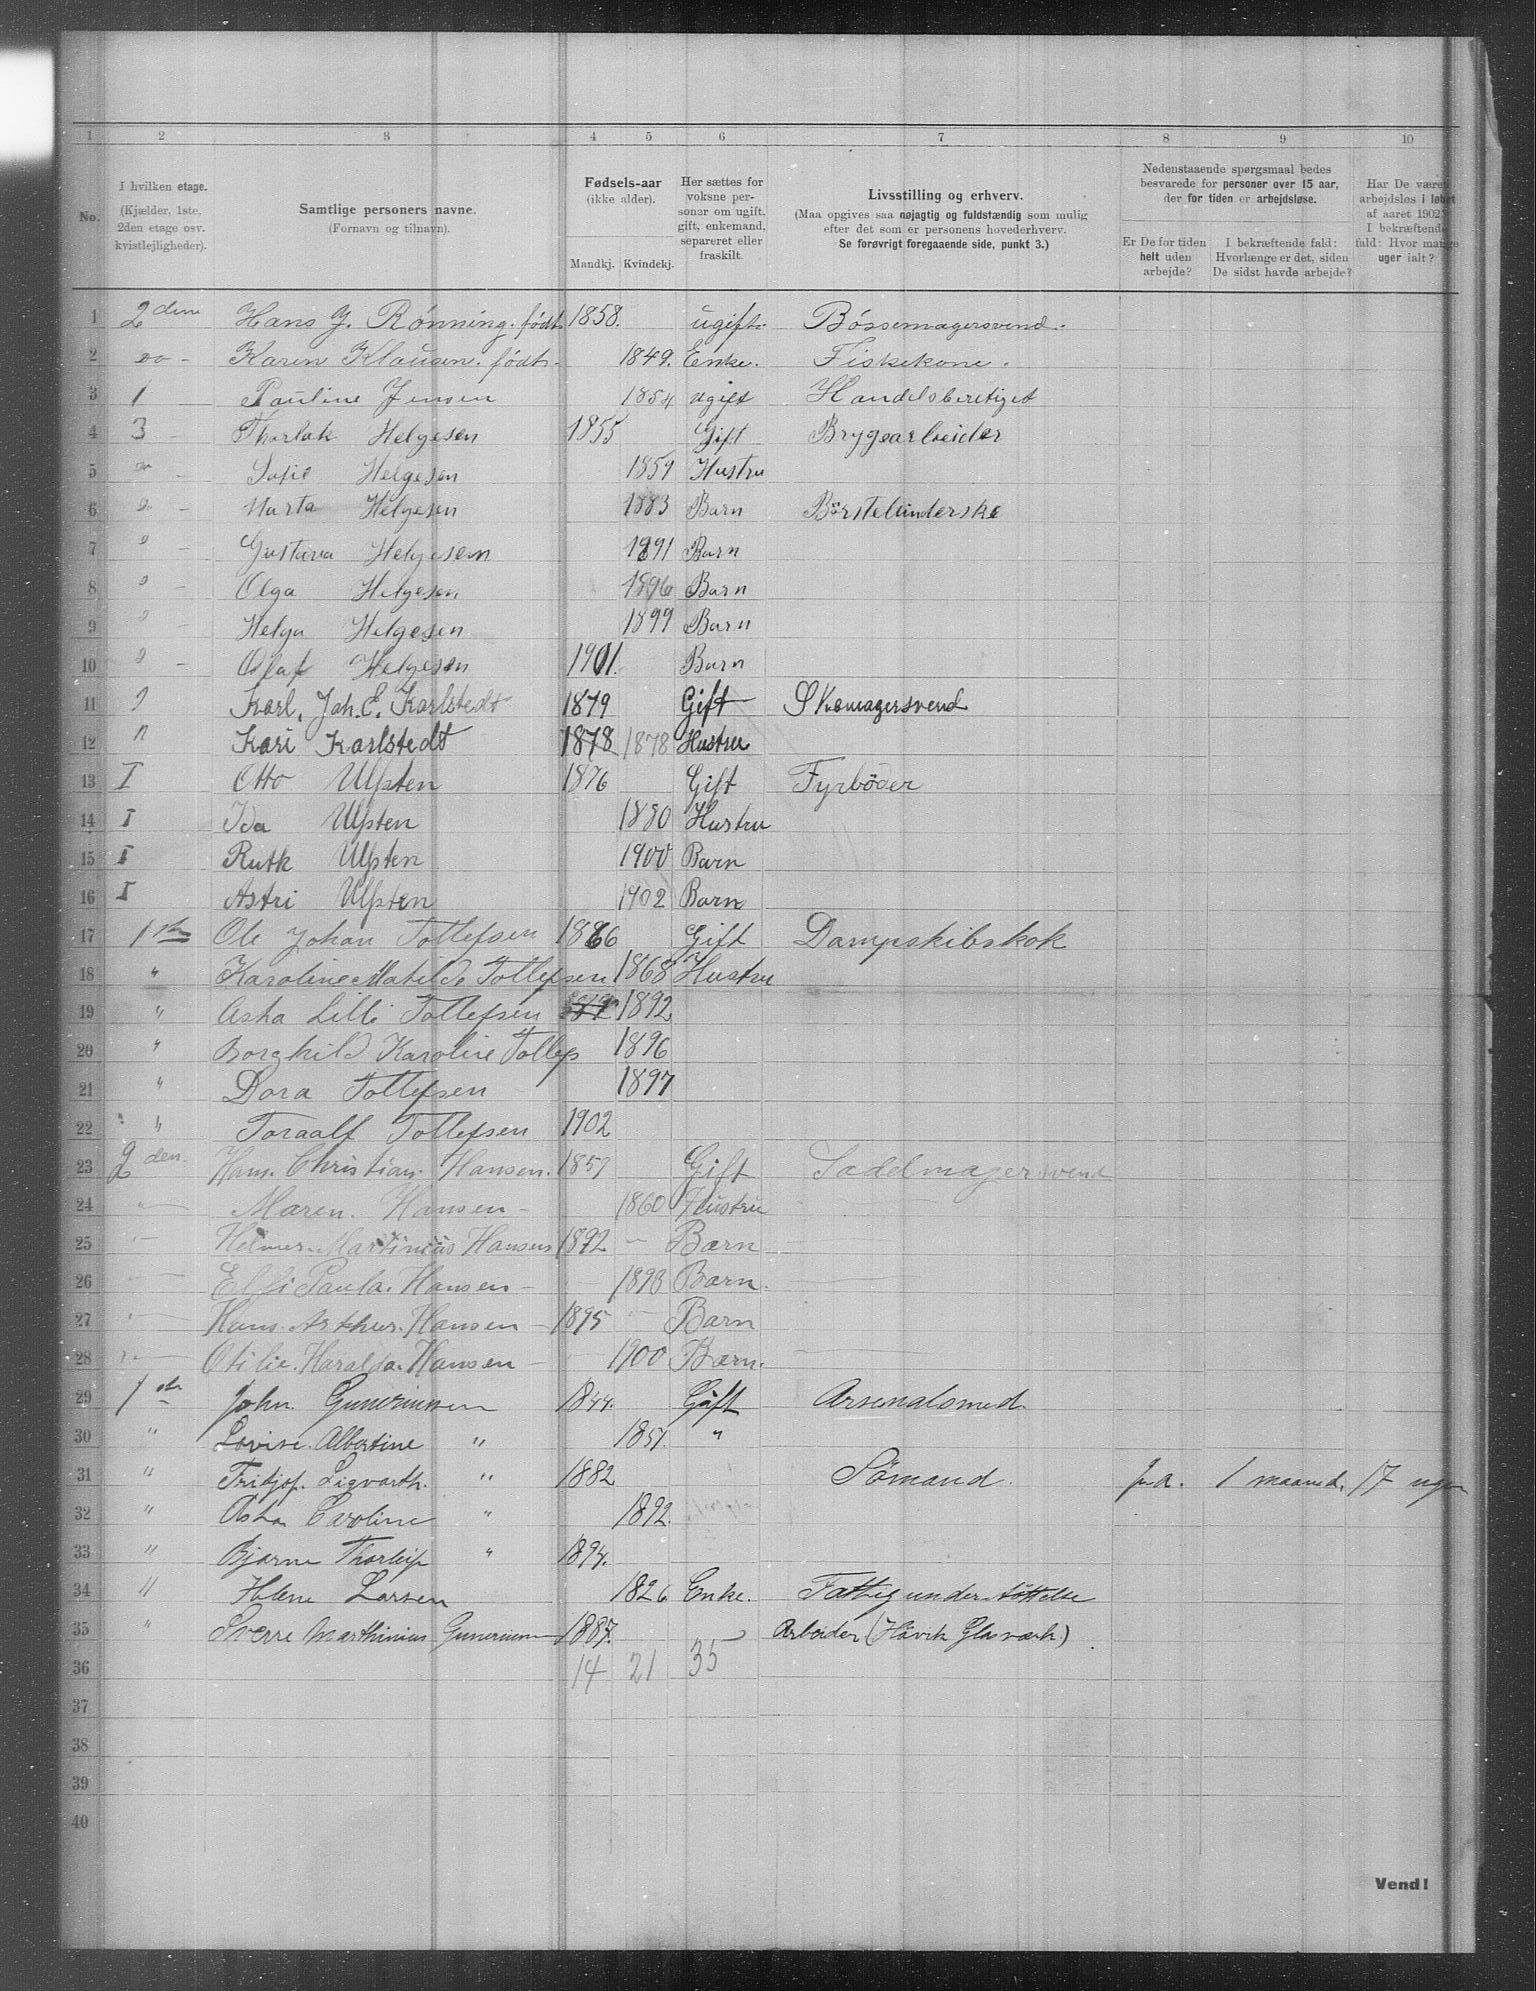 1 2 3 4 5 6 7 8 9 10
No.
I hvilken etage.
(Kjælder, 1ste,
2den etage osv.
kvistlejligheder).
Samtlige personers navne.
(Fornavn og tilnavn).
Fødsels-aar
(ikke alder).
Mandkj. Kvindekj.
Her sættes for
voksne per-
soner om ugift,
gift, enkemand,
separeret eller
fraskilt.
Livsstilling og erhverv.
(Maa opgives saa nøjagtig og fuldstændig som mulig
efter det som er personens hovederhverv.
Se forøvrigt foregaaende side, punkt 3.)
Nedenstaaende spørgsmaal bedes
besvarede for personer over 15 aar,
der for tiden er arbejdsløse.
Er De for tiden
helt uden
arbejde?
I bekræftende fald:
Hvorlænge er det, siden
De sidst havde arbejde?
Har De været
arbejdsløs i løbet
af aaret 1902?
I bekræftende
fald: Hvor mange
uger ialt?
1 2den Hans J. Rønning. født 1858. ugift. Bøssemagersvend.
2 do - Karen Klausen. født. 1849. Enke. Fiskekone.
3 1 Pauline Jensen 1854 ugift Handelsberetiget
4 3 - Thorlak Helgesen 1855 Gift Brygearbeider
5 do - Sofie Helgesen 1859 Hustru
6 do - Marta Helgesen 1883 Barn Børstebinderske
7 " - Gustava Helgesen 1891 Barn
8 " - Olga Helgesen 1896 Barn
9 " - Helga Helgesen 1899 Barn
10 " - Olaf Helgesen 1901. Barn
11 " Karl. Joh. E. Karlstedt 1879 Gift Skomagersvend
12 " Kari Karlstedt 1878 1878 Hustru
13 I Otto Ulsten 1876 Gift Fyrbøder
14 I Ida Ulsten 1880 Hustru
15 I Ruth Ulsten 1900 Barn
16 I Astri Ulsten 1902 Barn
17 1ste Ole Johan Tollefsen 1866 Gift Dampskibskok
18 " Karoline Matilde Tollefsen 1868 Hustru
19 " Asta Lilli Tollefsen 1892
20 " Borghild Karoline Tollefs 1896
21 " Dora Tollefsen 1897
22 " Toraalf Tollefsen 1902
23 2den. Hans. Christian. Hansen. 1857 Gift Sadelmagersvend
24 " Maren. Hansen - 1860 Hustru
25 " Helmer. Martinius Hansen 1892 - Barn
26 " Elfi Paula. Hansen - 1893 Barn.
27 " Hans. Arthur. Hansen - 1895 - Barn
28 " Otilie. Haralda. Hansen - 1900 Barn.
29 1ste John. Guneriussen 1844. Gift Arsenalsmed
30 " Lovise. Albertine " 1851. "
31 " Fritjof. Sigvarth. " 1882 Sømand. ja. 1 maaned. 17 uger
32 " Asta Caroline " 1892.
33 " Bjarne Thorleif " 1894.
34 " Helene Larsen 1826 Enke. Fattigunderstøttelse
35 " Sverre Marthinius Gunerius 1887. Arbeider (Høvik Glasværk)
36 14 21 35
37
38
39
40
Vend!